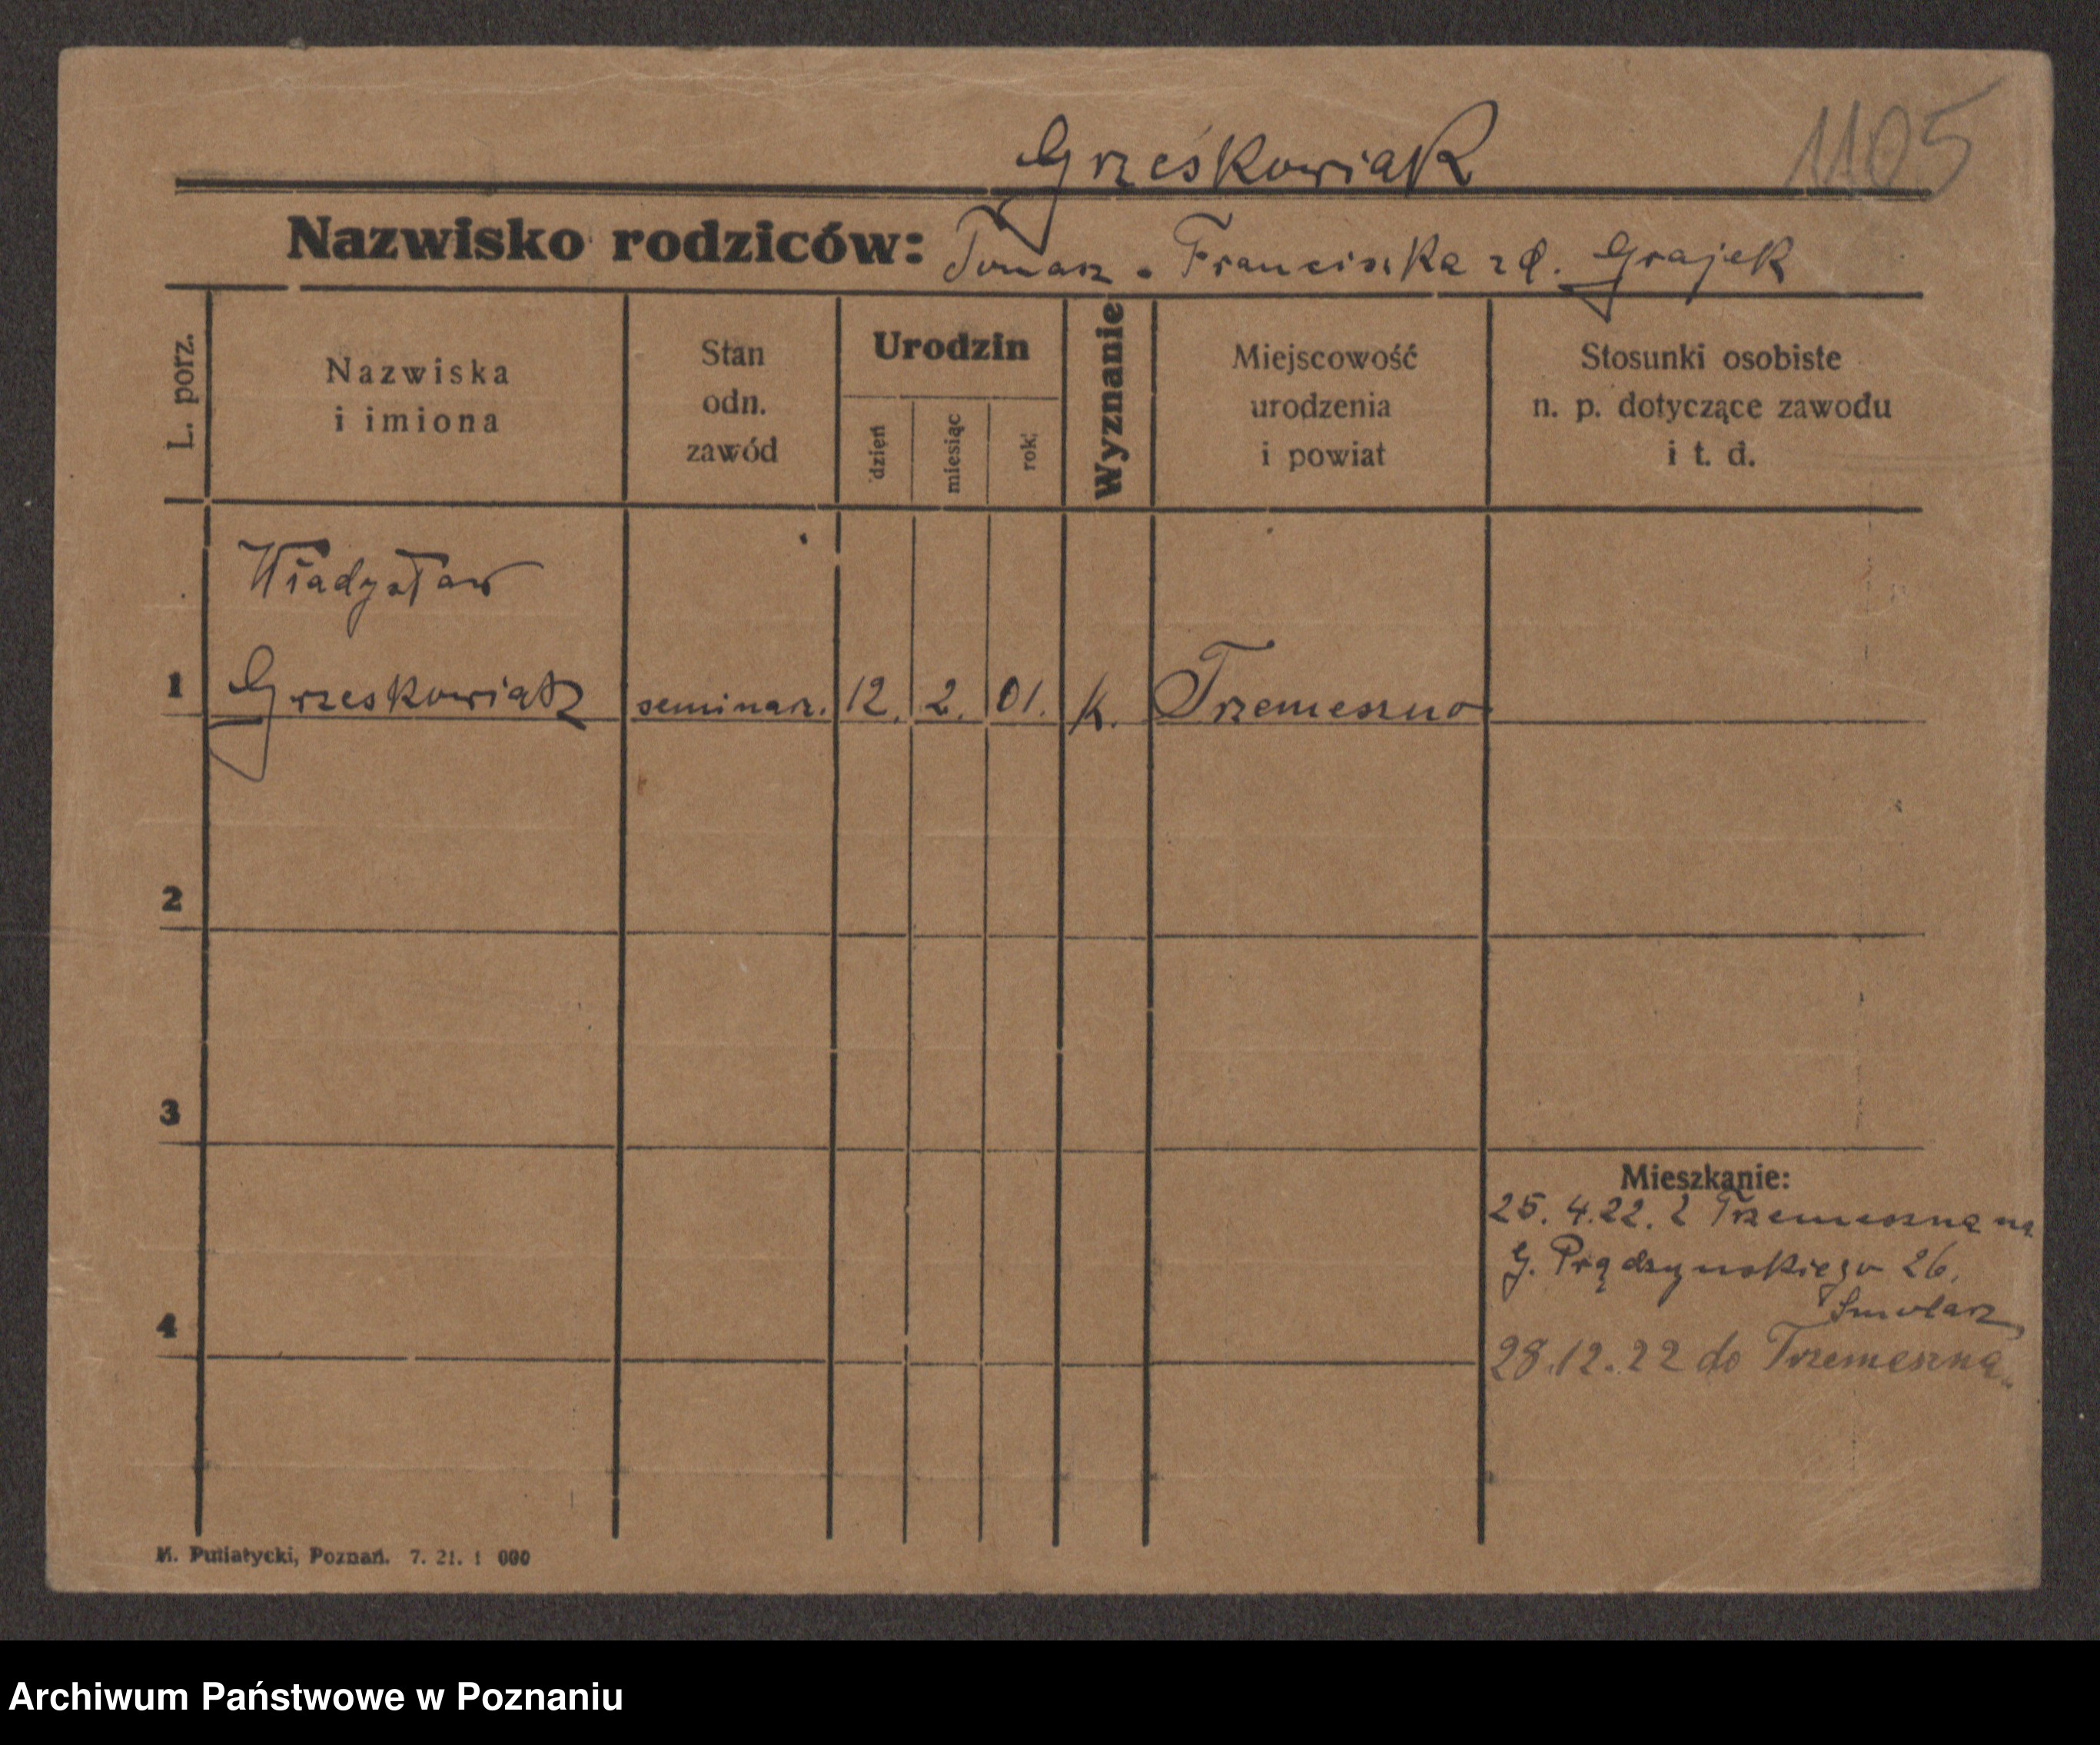 Grześkowiak
1105
Nazwisko rodziców: Tomasz - Franciszka zd. Grajek
L. porz.
Nazwiska
i imiona
Stan
odn.
zawód
Urodzin
dzień
miesiąc
rok
Wyznanie
Miejscowość
urodzenia
i powiat
Stosunki osobiste
n. p. dotyczące zawodu
i t. d.
Władysław
1 Grzeskowiak seminarz. 12. 2. 01. k. Trzemeszno
2
3
Mieszkanie:
25. 4. 22. z Trzemeszna na
G. Prądzynskiego 26,
Smolarz
4
28.12.22 do Trzemeszna
M. Putiatycki, Poznań. 7. 21. 1 000
Archiwum Państwowe w Poznaniu